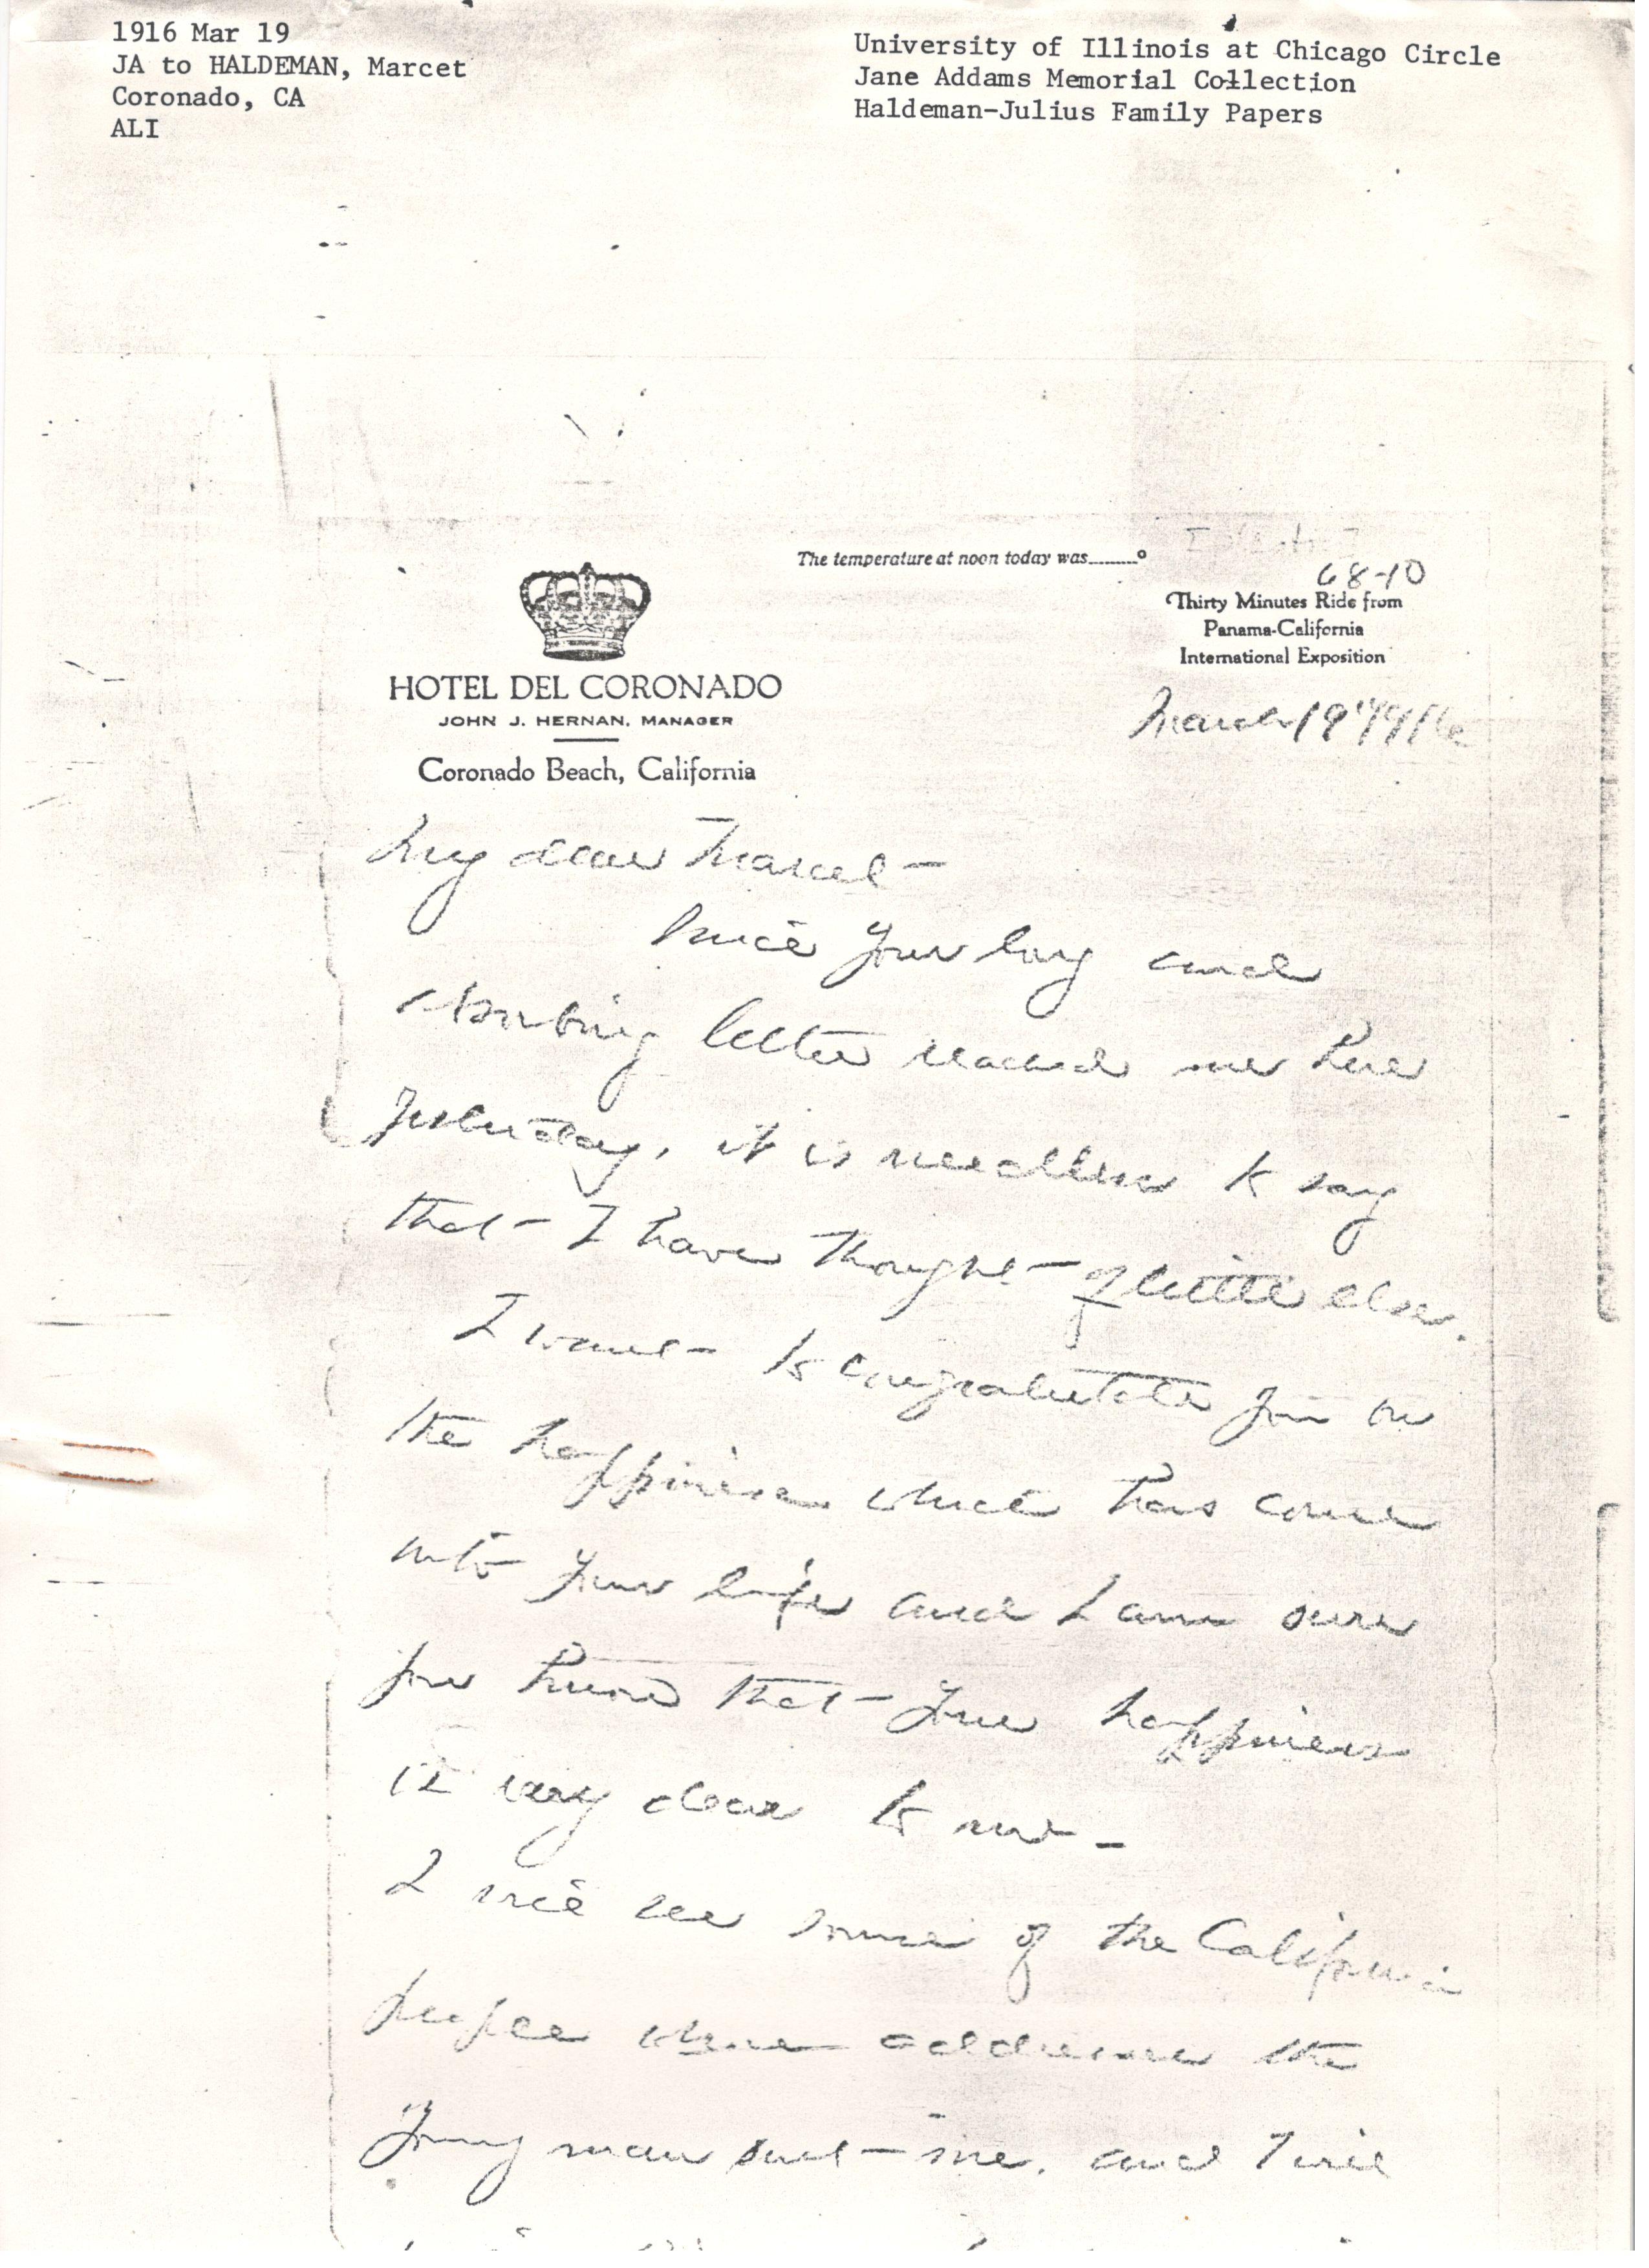 1916 Mar 19
JA to HALDEMAN, Marcet
Coronado, CA
ALI
University of Illinois at Chicago Circle
Jane Addams Memorial Collection
Haldeman-Julius Family Papers
The temperature at noon today was........°
68-10
Thirty Minutes Ride from
Panama-California
International Exposition
HOTEL DEL CORONADO
JOHN J. HERNAN, MANAGER
Coronado Beach, California
March 19" 1916
My dear Marcet –
Since your long and
absorbing letter reached me here
yesterday, it is needless to say
that I have thought of little else.
I want to congratulate you on
the happiness which has come
into your life and I am sure
you know that your happiness
is very dear to me –
I will see some of the California
people whose addresses the
young man sent me, and I will